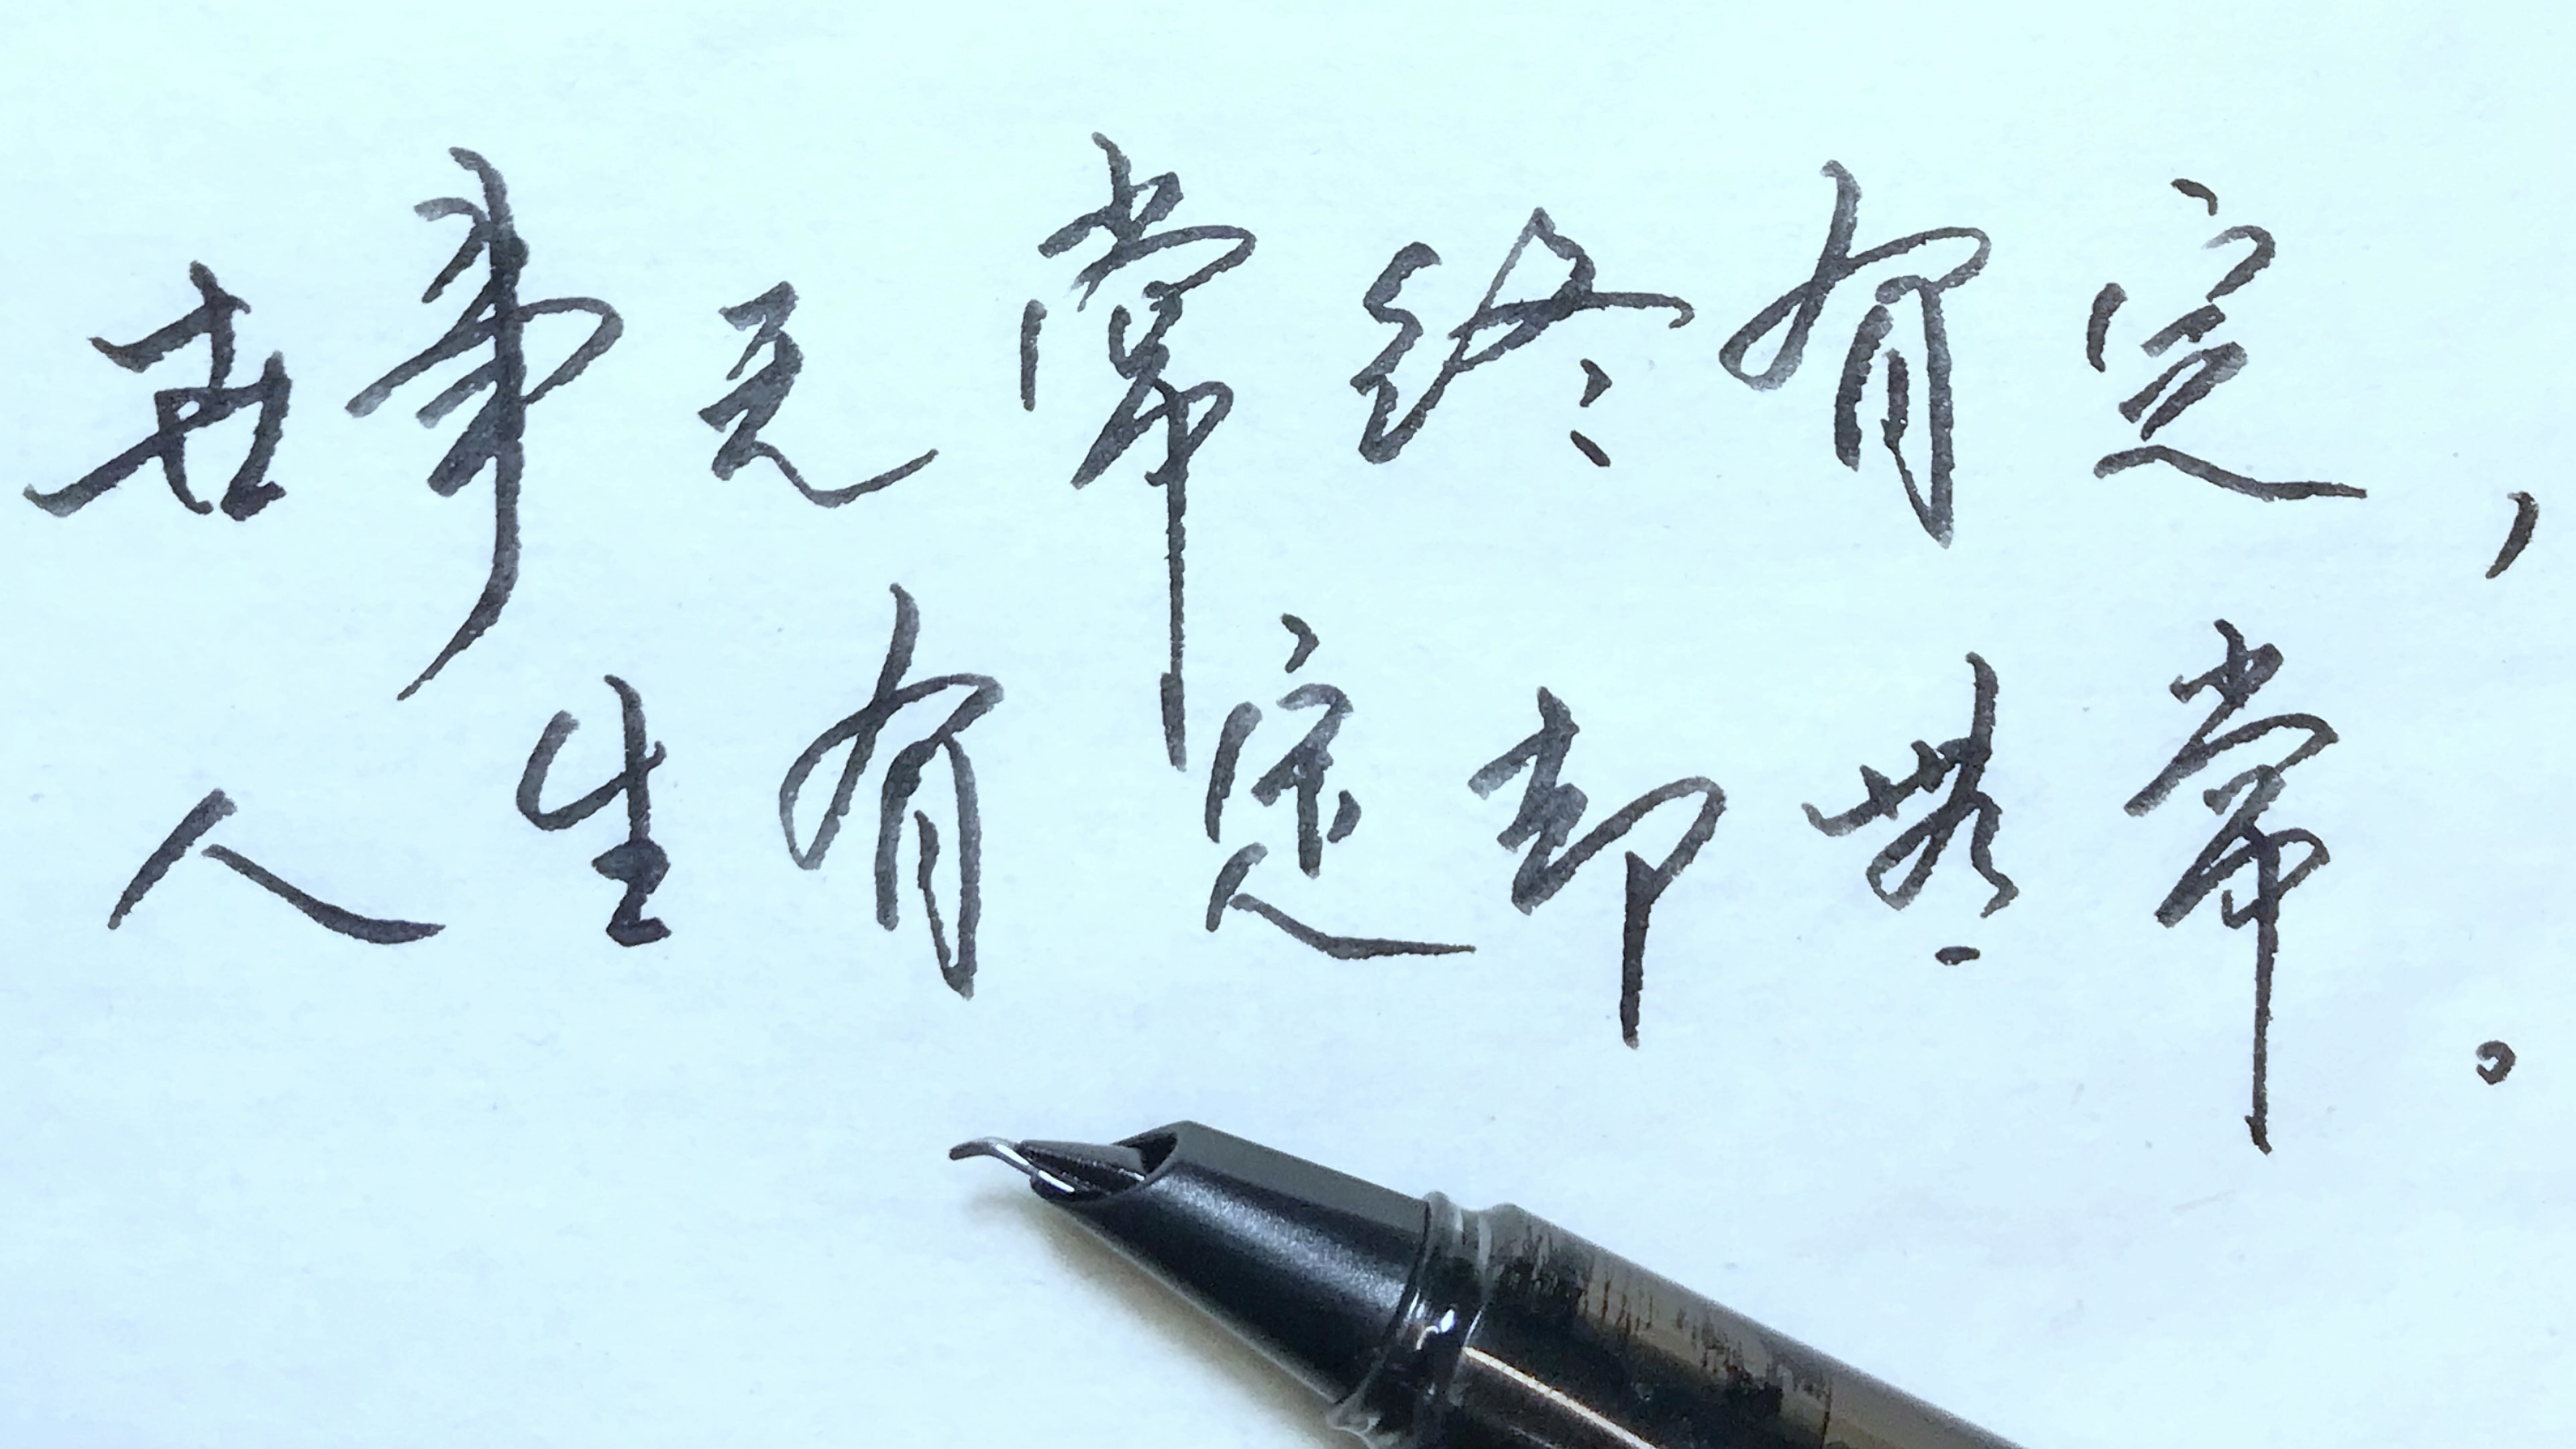 世事无常终有定，
人生有定却无常。